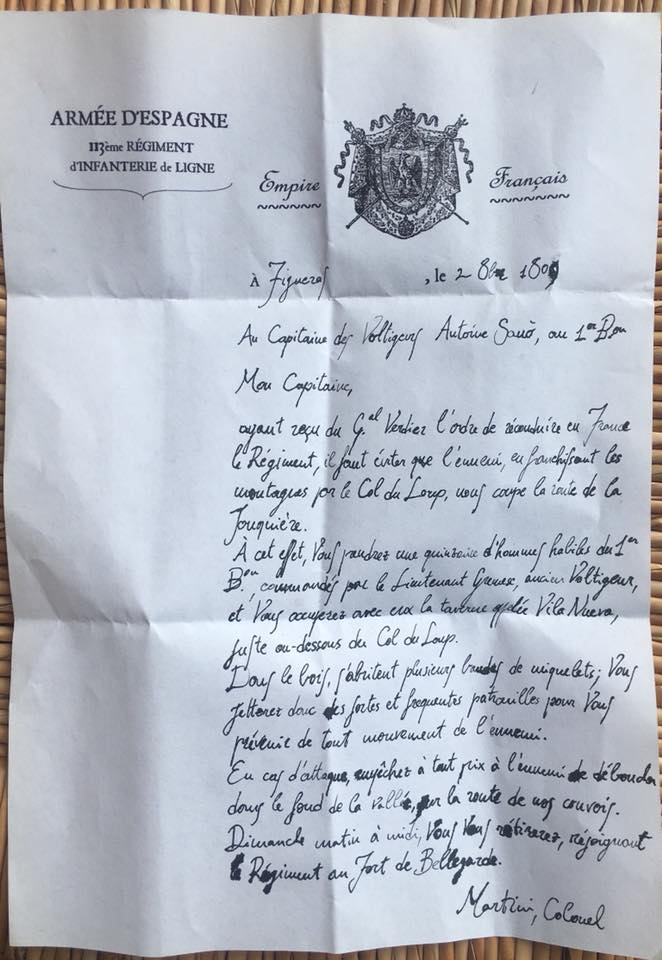 ARMÉE D'ESPAGNE
113ème RÉGIMENT
d'INFANTERIE de LIGNE
Empire Français
À Figueras , le 2 8bre 1809
Au Capitaine des Voltigeurs Antoine Sauò, au 1er Bon
Mon Capitaine,
ayant reçu du Gal Verdier l'ordre de réconduire en France
le Régiment, il faut éviter que l'ennemi, en franchissant les
montagnes par le Col du Loup, nous coupe la route de la
Jonquière.
À cet effet, Vous prendrez une quinzaine d'hommes habiles du 1er
Bon, commandés par le Lieutenant ancien Voltigeur,
et Vous occuperez avec eux la taverne appelée Vila Nueva,
juste au-dessous du Col du Loup.
Dans le bois, s'abritent plusieurs bandes de miquelets; Vous
jetterez donc des fortes et frequentes patrouilles pour Vous
prévenir de tout mouvement de l'ennemi.
En cas d'attaque, empêchez à tout prix à l'ennemi de déboucher
dans le fond de la vallée, sur la route de nos convois.
Dimanche matin à midi, Vous Vous rétirerez, réjoignant
le Régiment au Fort de Bellegarde.
Martini, Colonel